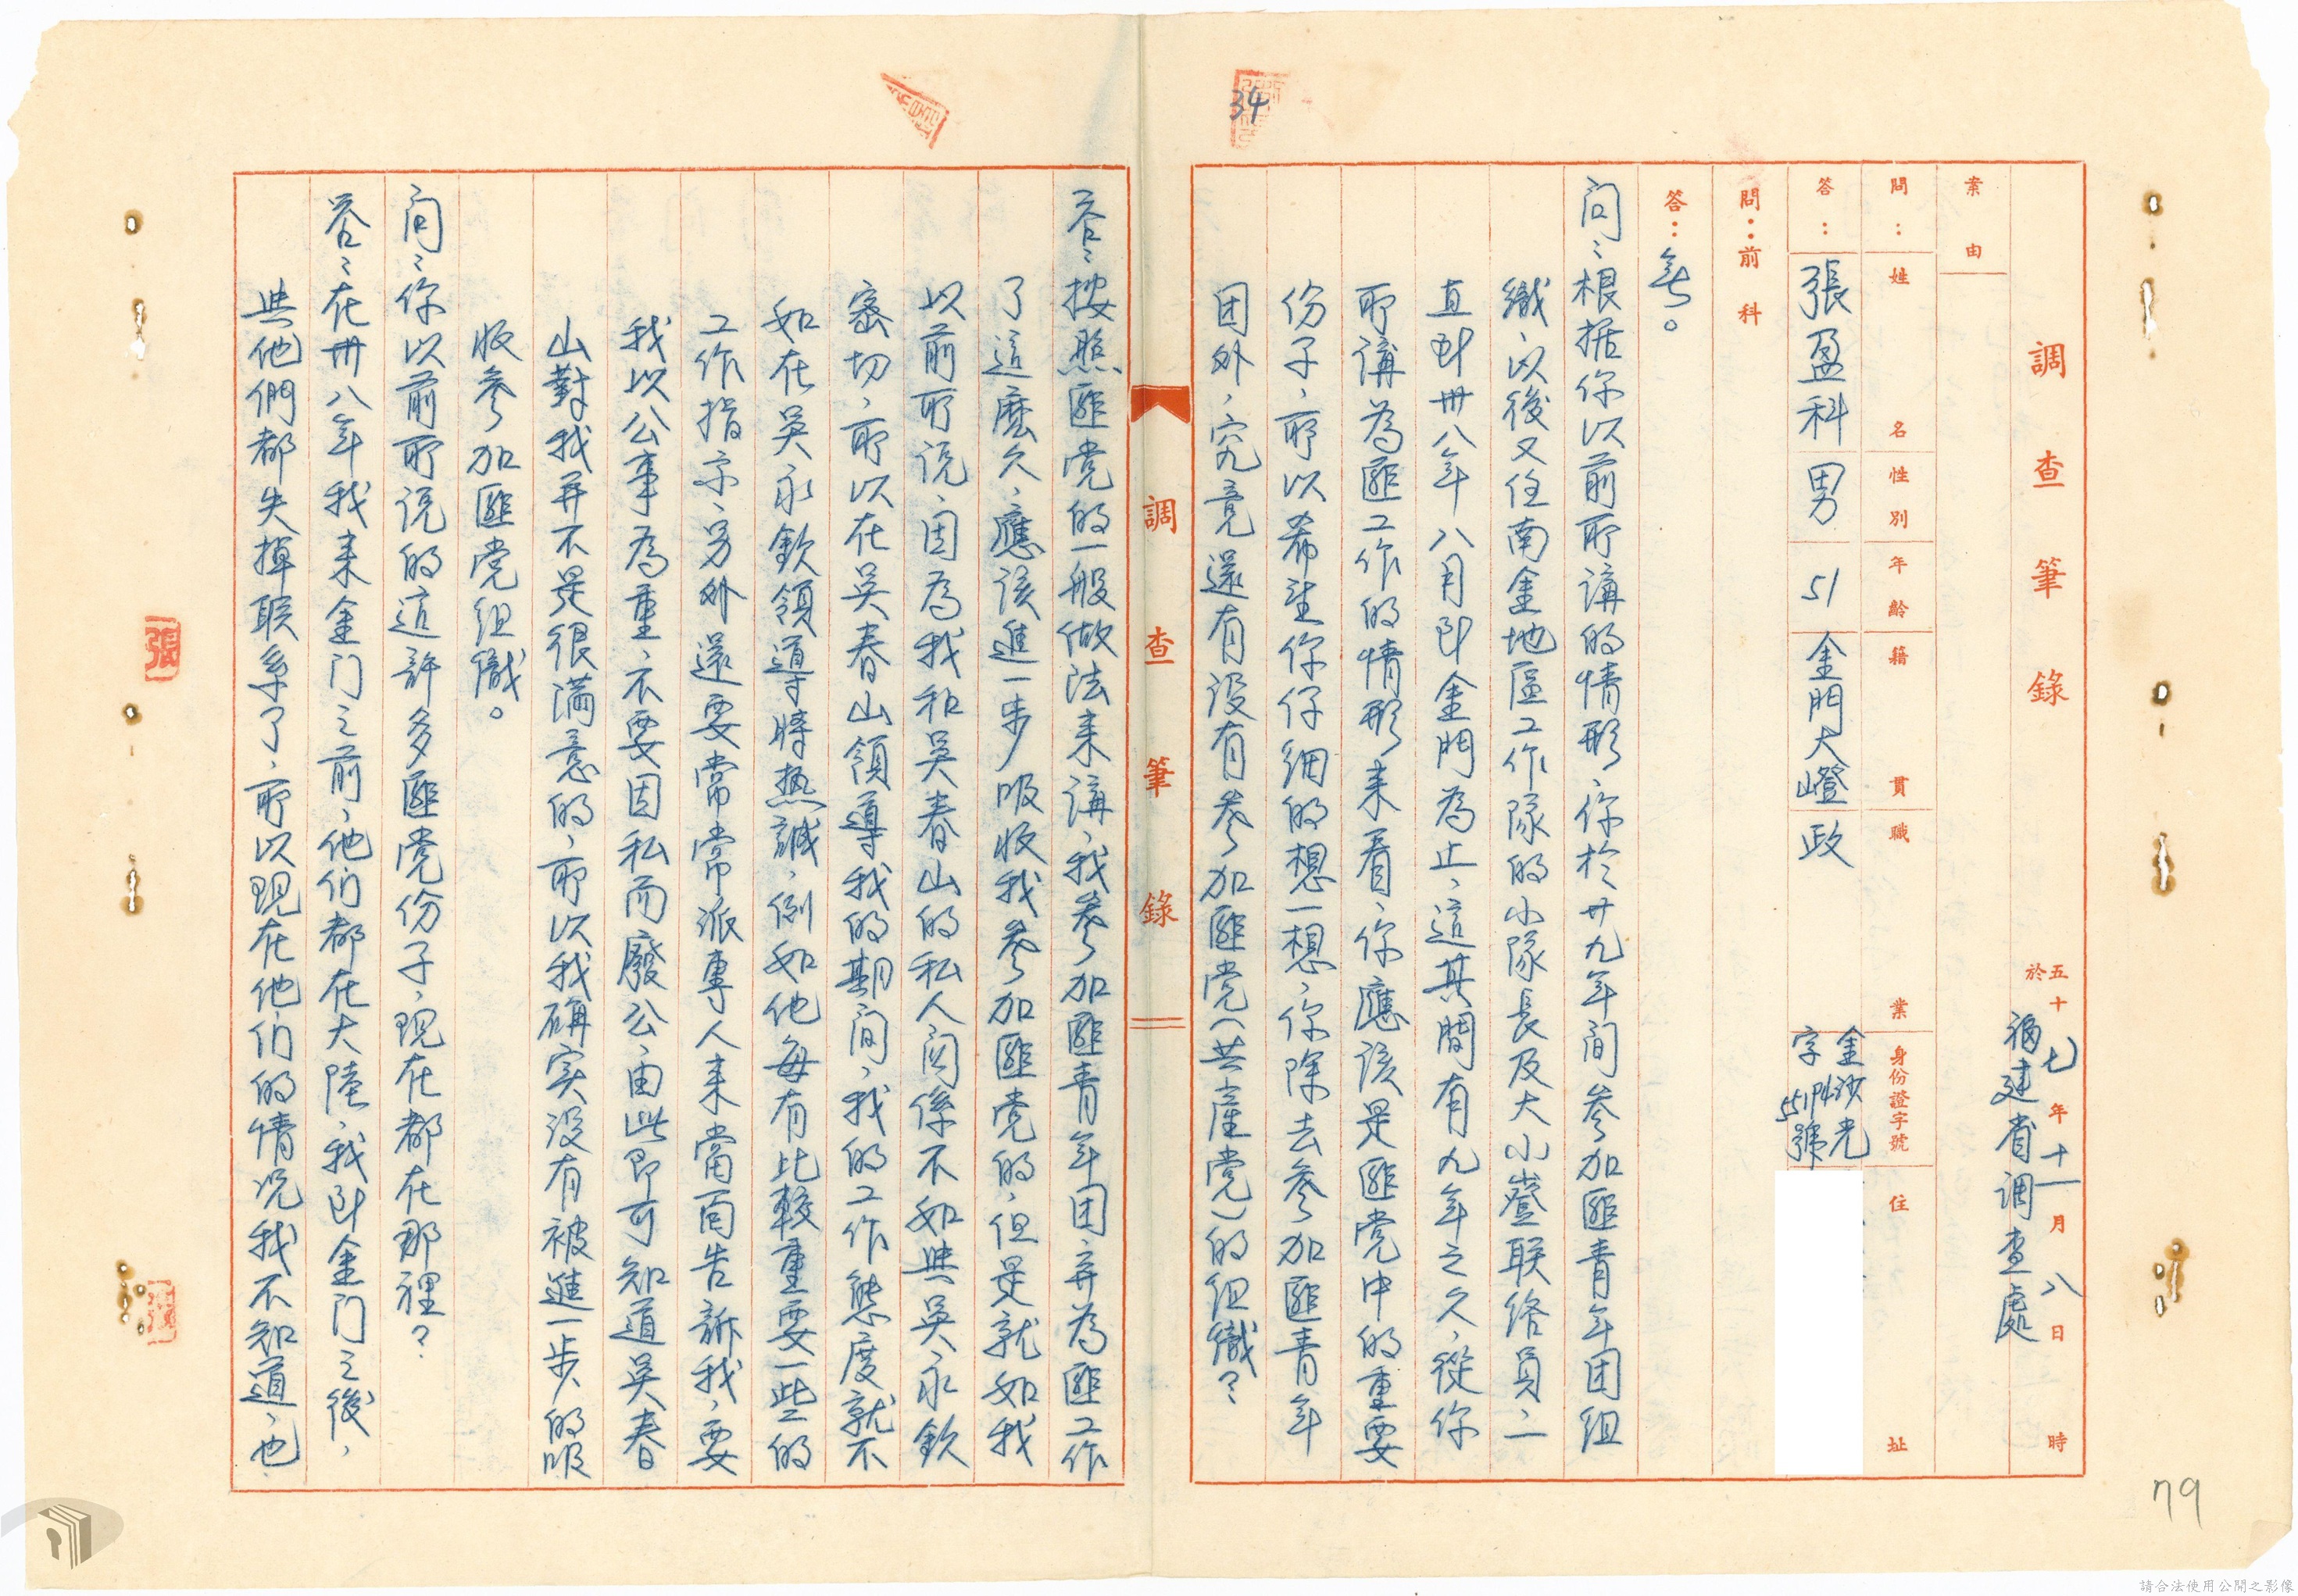 34
調查筆錄
五十七年十一月八日 時
於福建省調查處
案由
問：姓名 性別 年齡 籍貫 職業 身份證字號 住址
答：張盈科 男 51 金門大嶝 政 金沙光字
號
問：前科
答：無。
問：根据你以前所講的情形，你於廿九年间參加匪青年团組
織，以後又任南金地區工作隊的小隊長及大小嶝联络員，一
直到卅八年八月到金門為止，這其間有九年之久，從你
所講為匪工作的情形來看，你應该是匪党中的重要
份子，所以希望你仔细的想一想，你除去參加匪青年
团外，究竟還有没有參加匪党（共產党）的组織？
調查筆錄
答：按照匪党的一般做法来講，我參加匪青年团，并為匪工作
了這麽久，應该進一步吸收我參加匪党的，但是就如我
以前所说，因為我和吳春山的私人関係不如與吳永欽
密切，所以在吳春山領導我的期间，我的工作態度就不
如在吳永欽領導時热誠，例如他每有比較重要一些的
工作指示，另外還要常常派專人来當面告訴我，要
我以公事為重，不要因私而廢公，由此即可知道吳春
山對我并不是很满意的，所以我确实没有被進一步的吸
收參加匪党组織。
问：你以前所说的這許多匪党份子，现在都在那裡？
答：在卅八年我来金门之前，他们都在大陸，我到金门之後，
與他們都失掉联系了，所以现在他们的情况我不知道，也
79
請合法使用公開之影像